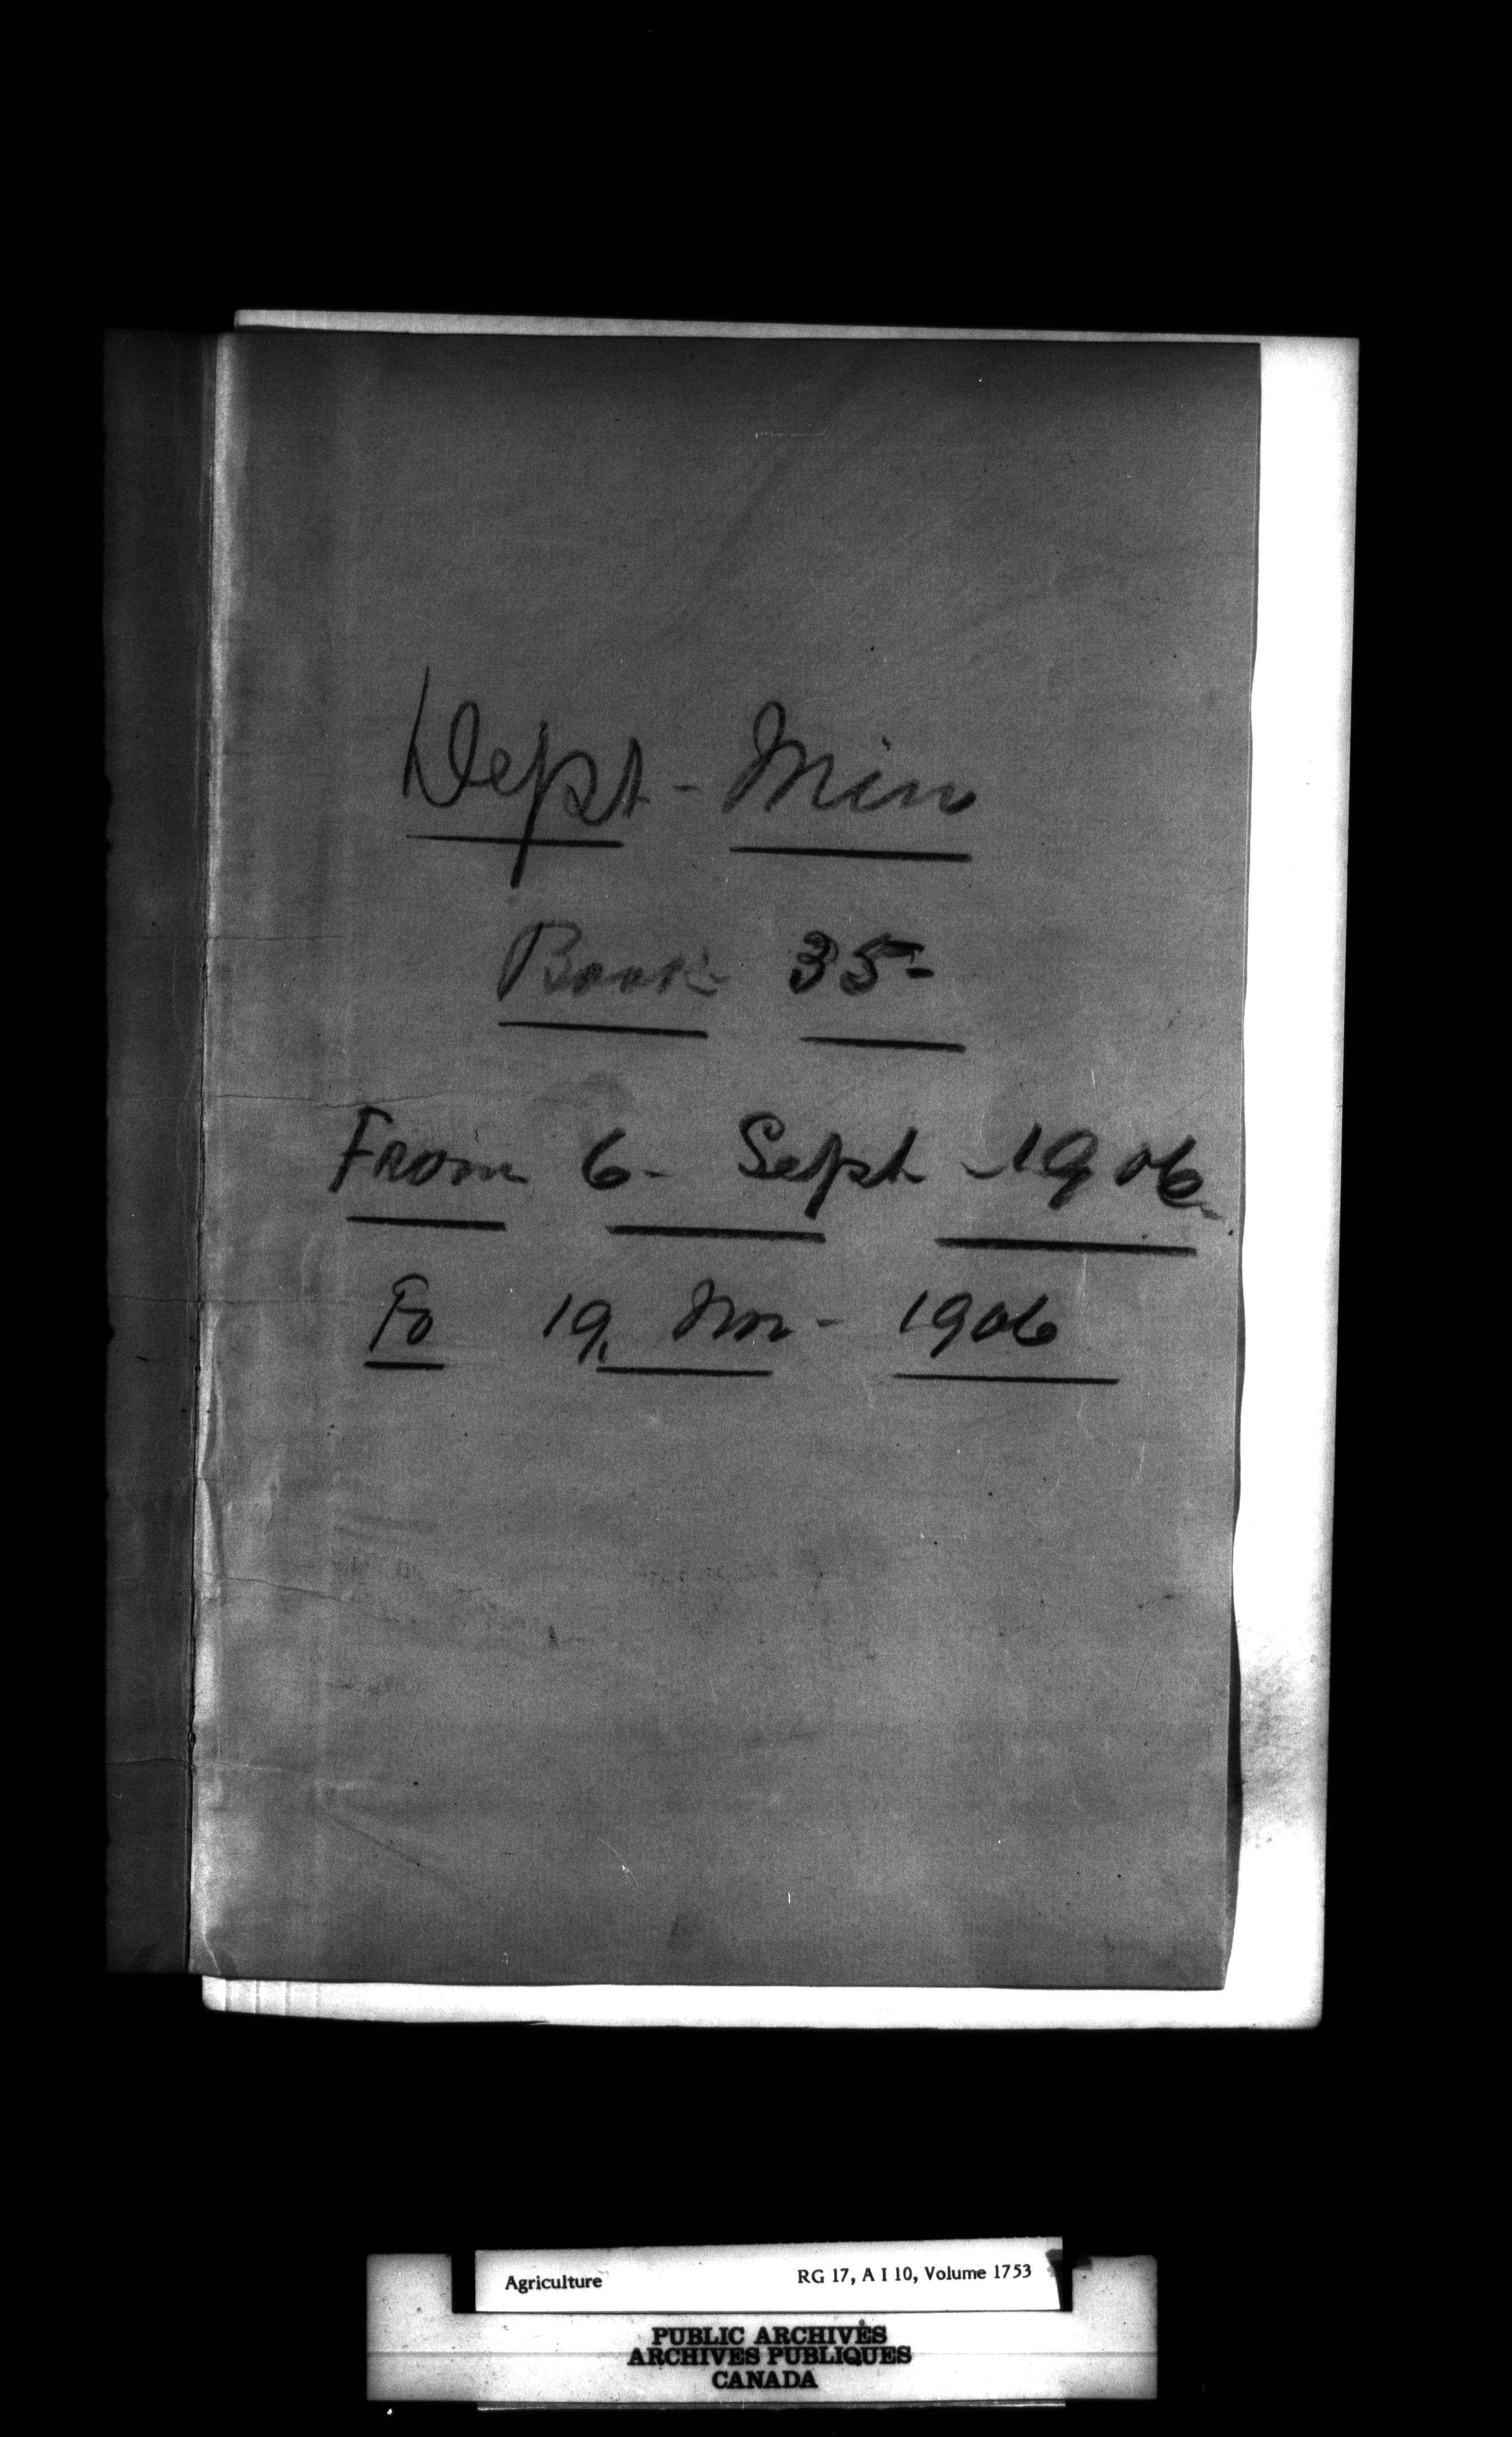 Dept - Min
Book 35-
From 6- Sept - 1906
To 19, Nov - 1906
Agriculture RG 17, A I 10, Volume 1753
PUBLIC ARCHIVES
ARCHIVES PUBLIQUES
CANADA